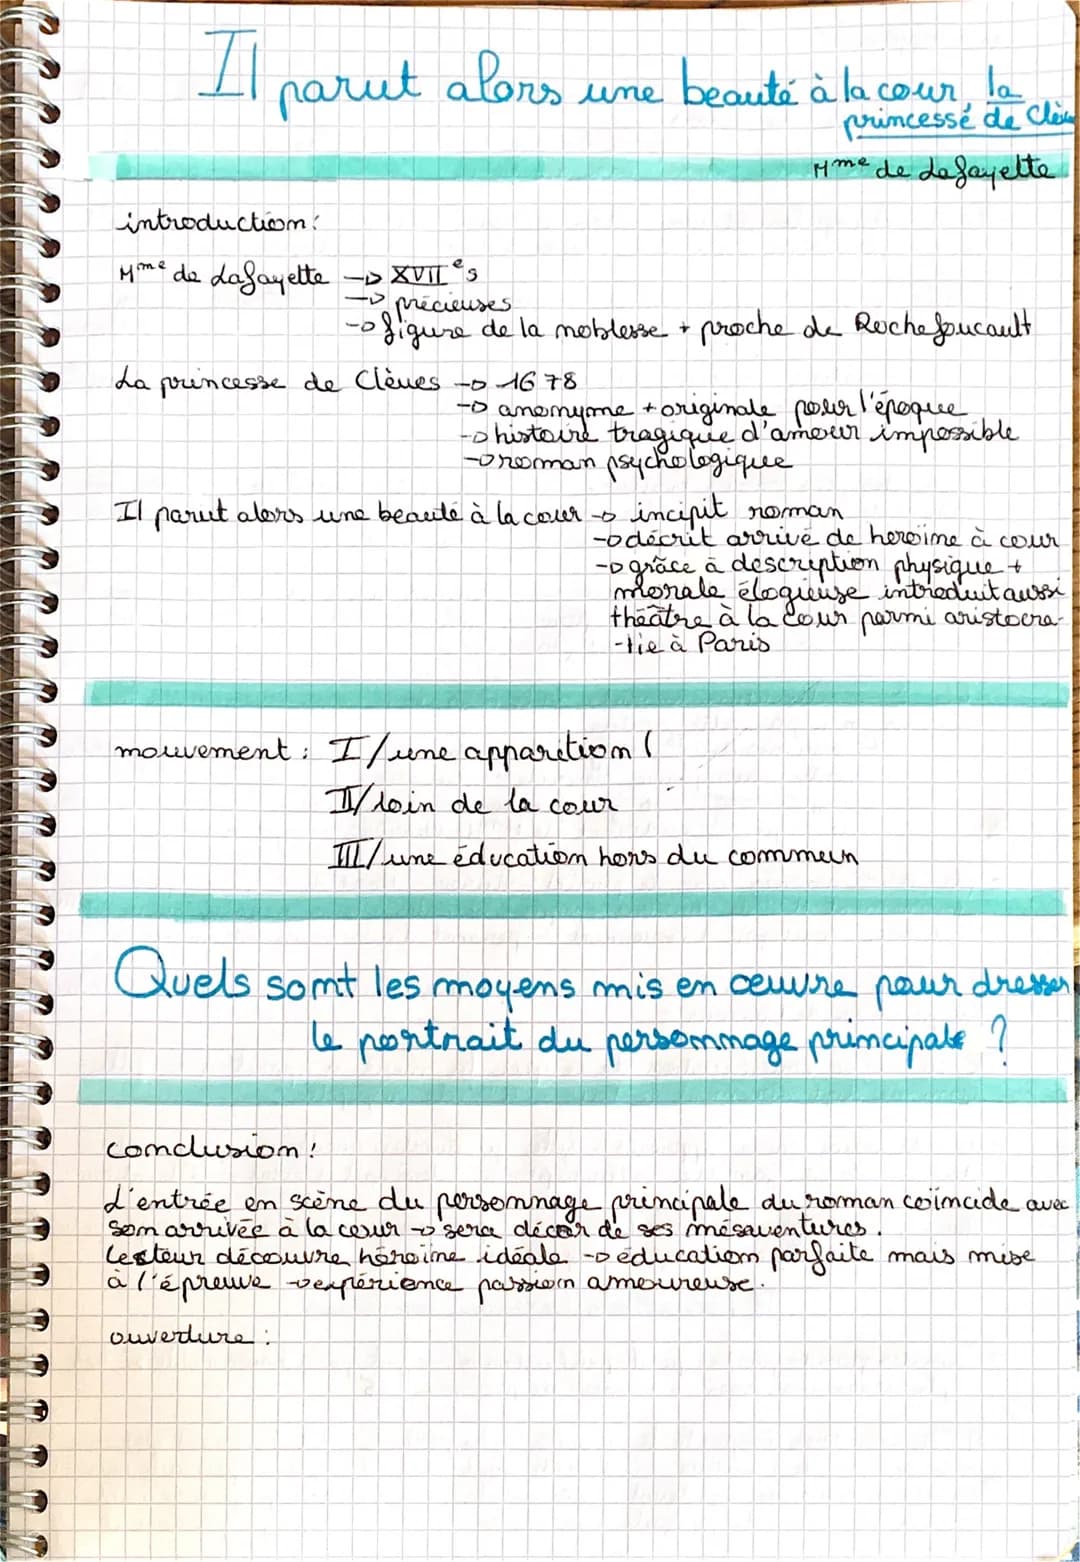 Il parut alors une beauté à la cour, la
princesse de Clèves
Mme de Lafayette
introduction :
Mme de Lafayette → XVIIe s
→ précieuses
→ figure de la noblesse + proche de Rochefoucault
La princesse de Clèves → 1678
→ anonyme + originale pour l'époque
→ histoire tragique d'amour impossible
→ roman psychologique
Il parut alors une beauté à la cour → incipit roman
→ décrit arrivé de heroïne à cour
→ grâce à description physique +
morale élogieuse introduit aussi
théâtre à la cour parmi aristocra-
-tie à Paris
mouvement : I/ une apparition (
II/ loin de la cour
III/ une éducation hors du commun
Quels sont les moyens mis en oeuvre pour dresser
le portrait du personnage principale ?
conclusion :
L'entrée en scène du personnage principale du roman coïncide avec
son arrivée à la cour → sera décor de ses mésaventures.
Lecteur découvre héroïne idéale → éducation parfaite mais mise
à l'épreuve → expérience passion amoureuse.
ouverture :